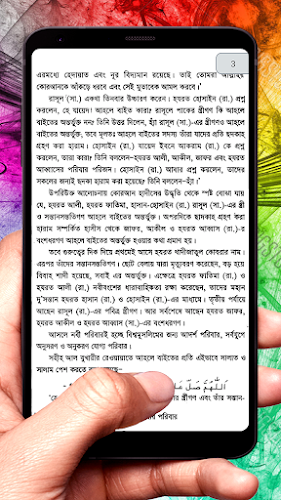 3
এরমধ্যে হেদায়াত এবং নূর বিদ্যমান রয়েছে। তাই তোমরা আল্লাহর
কোরআনকে আঁকড়ে ধরবে এবং সেই মুতাবেক আমল করবে।'
রাসূল (সা.) একথা তিনবার উচ্চারণ করেন। হযরত হোসাইন (রা.) প্রশ্ন
করলেন, হে যায়েদ! আহলে বাইত কারা? রাসূলে পাকের স্ত্রীগণ কি আহলে
বাইতের অন্তর্ভুক্ত নন? তিনি উত্তর দিলেন, হ্যাঁ রাসূল (সা.)-এর স্ত্রীগণ আহলে
বাইতের অন্তর্ভুক্ত, তবে মূলতঃ আহলে বাইতের সদস্য তাঁরা যাদের প্রতি ছদকাহ
গ্রহণ করা হারাম। হোসাইন (রা.) যায়েদ ইবনে আকরাম (রা.) কে প্রশ্ন
করলেন, তারা কারা? তিনি বললেন–হযরত আলী, আকীল, জাফর এবং হযরত
আব্বাসের পরিবার পরিজন। হোসাইন (রা.) আবার প্রশ্ন করলেন, তাদের
সকলের জন্যই ছদকা হারাম করা হয়েছে? তিনি বললেন–হ্যাঁ।'
উপরিউক্ত আলোচনায় কোরআন হাদীসের উদ্ধৃতি থেকে স্পষ্ট বোঝা যায়
যে, হযরত আলী, হযরত ফাতিমা, হাসান-হোসাইন (রা.) রাসূল (সা.)-এর স্ত্রী
ও সন্তানসন্ততিগণ আহলে বাইতের অন্তর্ভুক্ত। অপরদিকে ছাদকাহ গ্রহণ করা
হারাম সম্পর্কিত হাদীস থেকে জাফর, আকীল ও হযরত আব্বাস (রা.)-র
বংশধরগণ আহলে বাইতের অন্তর্ভুক্ত হওয়ার কথা প্রমাণ হয়।
তবে গুরুত্বের দিক দিয়ে প্রথমেই আসে হযরত খাদীজাতুল কোবরার নাম।
এরপর তাঁদের সন্তানসন্ততিগণ। ছোট বেলায় যারা মৃত্যুবরণ করেছেন, বড় হয়ে
বিবাহ শাদী হয়েছে, সবাই এর অন্তর্ভুক্ত। এক্ষেত্রে হযরত ফাতিমা (রা.) ও
হযরত আলী (রা.) নবীবংশের ধারাবাহিকতা রক্ষা করেছেন, তাদের মহান
দু'সন্তান হযরত হাসান (রা.) ও হোসাইন (রা.)-এর মাধ্যমে। তৃতীয় পর্যায়ে
আছেন রাসূল (সা.)-এর পবিত্র স্ত্রীগণ। আর সর্বশেষে আছেন হযরত জাফর,
হযরত আকীল ও হযরত আব্বাস (সা.)-এর বংশধরগণ।
আসলে নবী পরিবারই হচ্ছে বিশ্বমুসলিমের জন্য আদর্শ পরিবার, সর্বযুগে
অনুসরণ ও অনুকরণ যোগ্য পরিবার।
সহীহ আল বুখারীর রেওয়ায়াতে আহলে বাইতের প্রতি এইভাবে সালাত ও
সালাম পেশ করতে
اَللّٰهُمَّ صَلِّ
স্ত্রীগণ এবং তাঁর সন্তান-
পরিবার